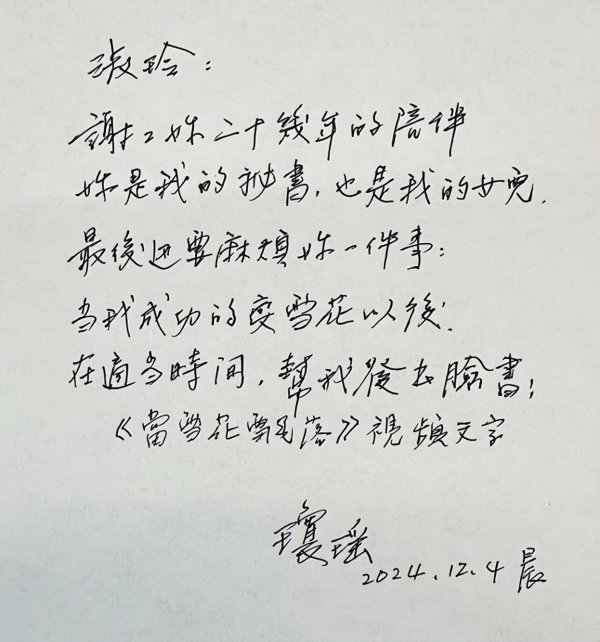 淑玲：
謝谢妳二十幾年的陪伴
妳是我的秘書，也是我的女兒．
最後还要麻煩妳一件事：
当我成功的变雪花以後．
在適当時間，幫我發出臉書：
《當雪花飄落》視頻文字
瓊瑤
2024.12.4 晨